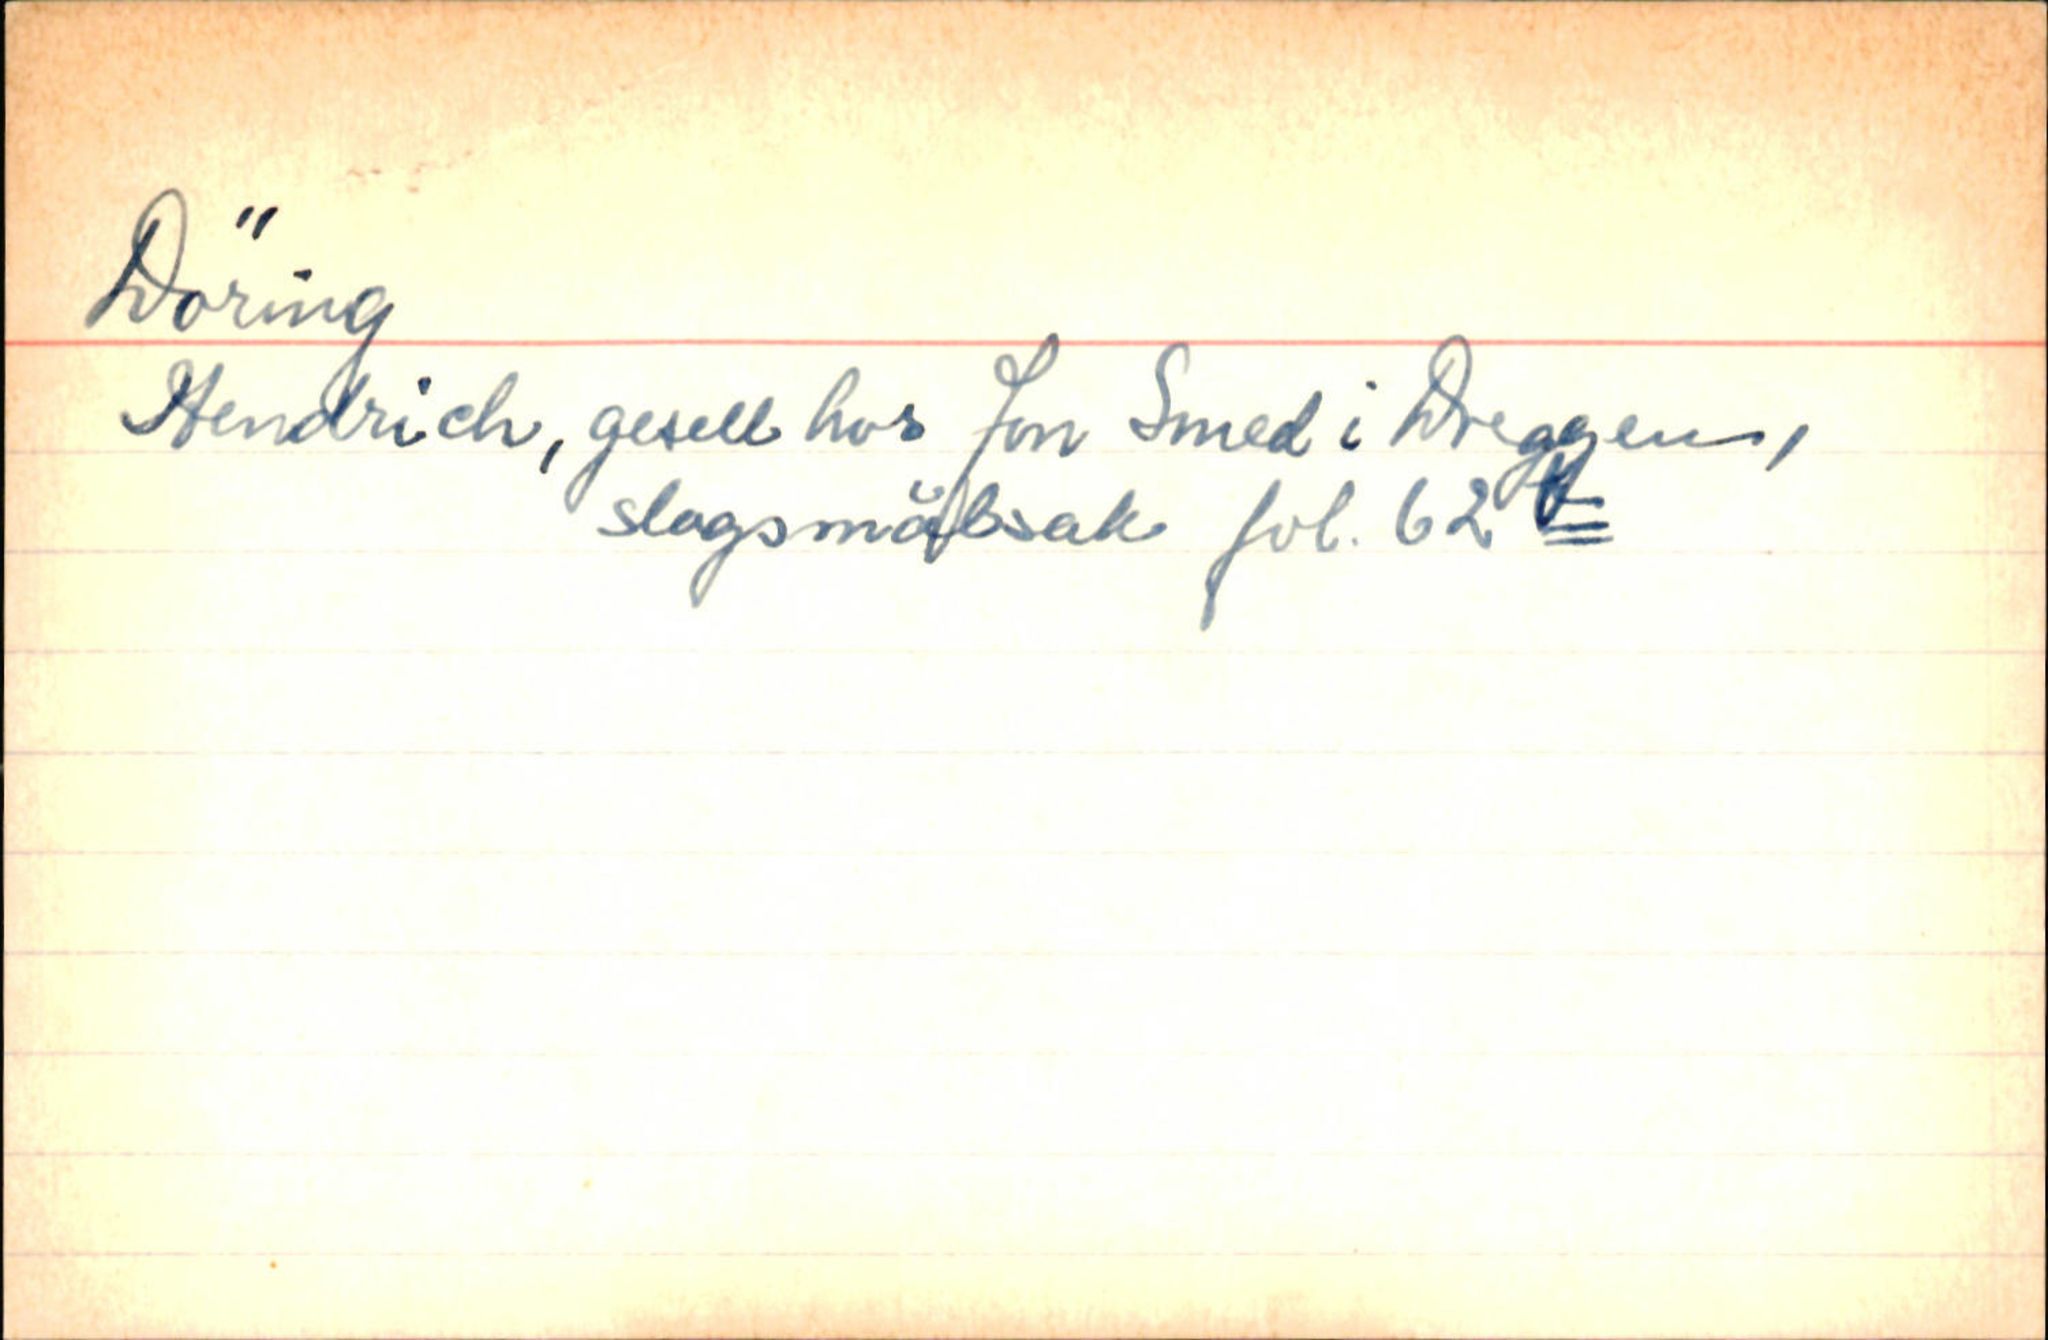 Döring
Hendrich, gesell hos Jon Smed i Dreggen,
slagsmålsak fol. 62